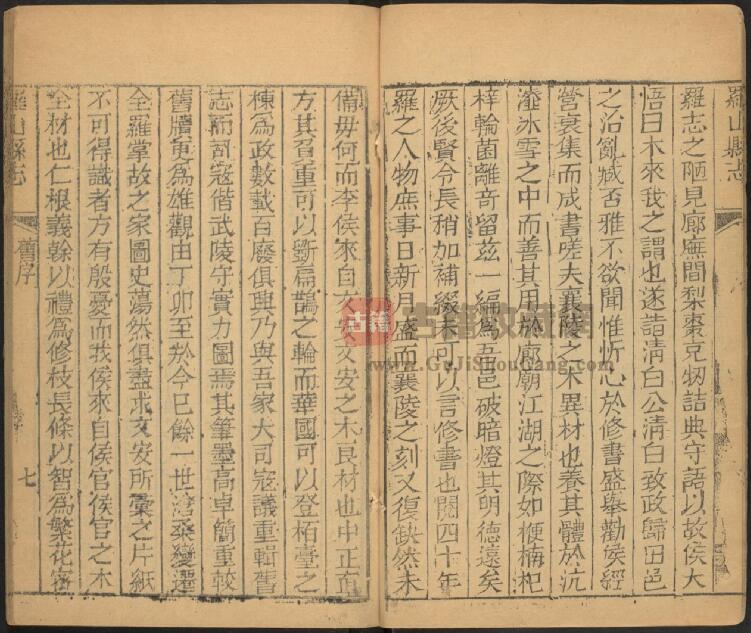 羅山縣志
羅志之陋見廊廡間梨棗克牣詰典守語以故侯大
悟曰木來我之謂也遂詣淸白公淸白致政歸田邑
之治亂臧否雅不欲聞惟忻心於修書盛舉勸侯經
營裒集而成書嗟夫襄陵之木異材也養其體於沆
瀣冰雪之中而善其用於廊廟江湖之際如楩楠杞
梓輪菌離奇留茲一編爲吾邑破暗燈其明德遠矣
厥後賢令長稍加補綴未可以言修書也閱四十年
羅之人物庶事日新月盛而襄陵之刻又復缺然未
備毋何而李侯來自文安文安之木良材也中正而
方其負重可以斲扁鵲之輪而華國可以登栢臺之
棟爲政數載百廢俱興乃與吾家大司寇議重輯舊
志而司寇偕武陵守實力圖焉其筆墨高卓簡重較
舊牘更爲雄觀由丁卯至於今已餘一世滄桑變遷
全羅掌故之家圖史蕩然俱盡求文安所彙之片紙
不可得識者方有殷憂而我侯來自侯官侯官之木
全材也仁根義榦以禮爲修枝長條以智爲繁花密
羅山縣志
舊序
七
古籍 古籍收藏網
www.GuJiShouCang.com